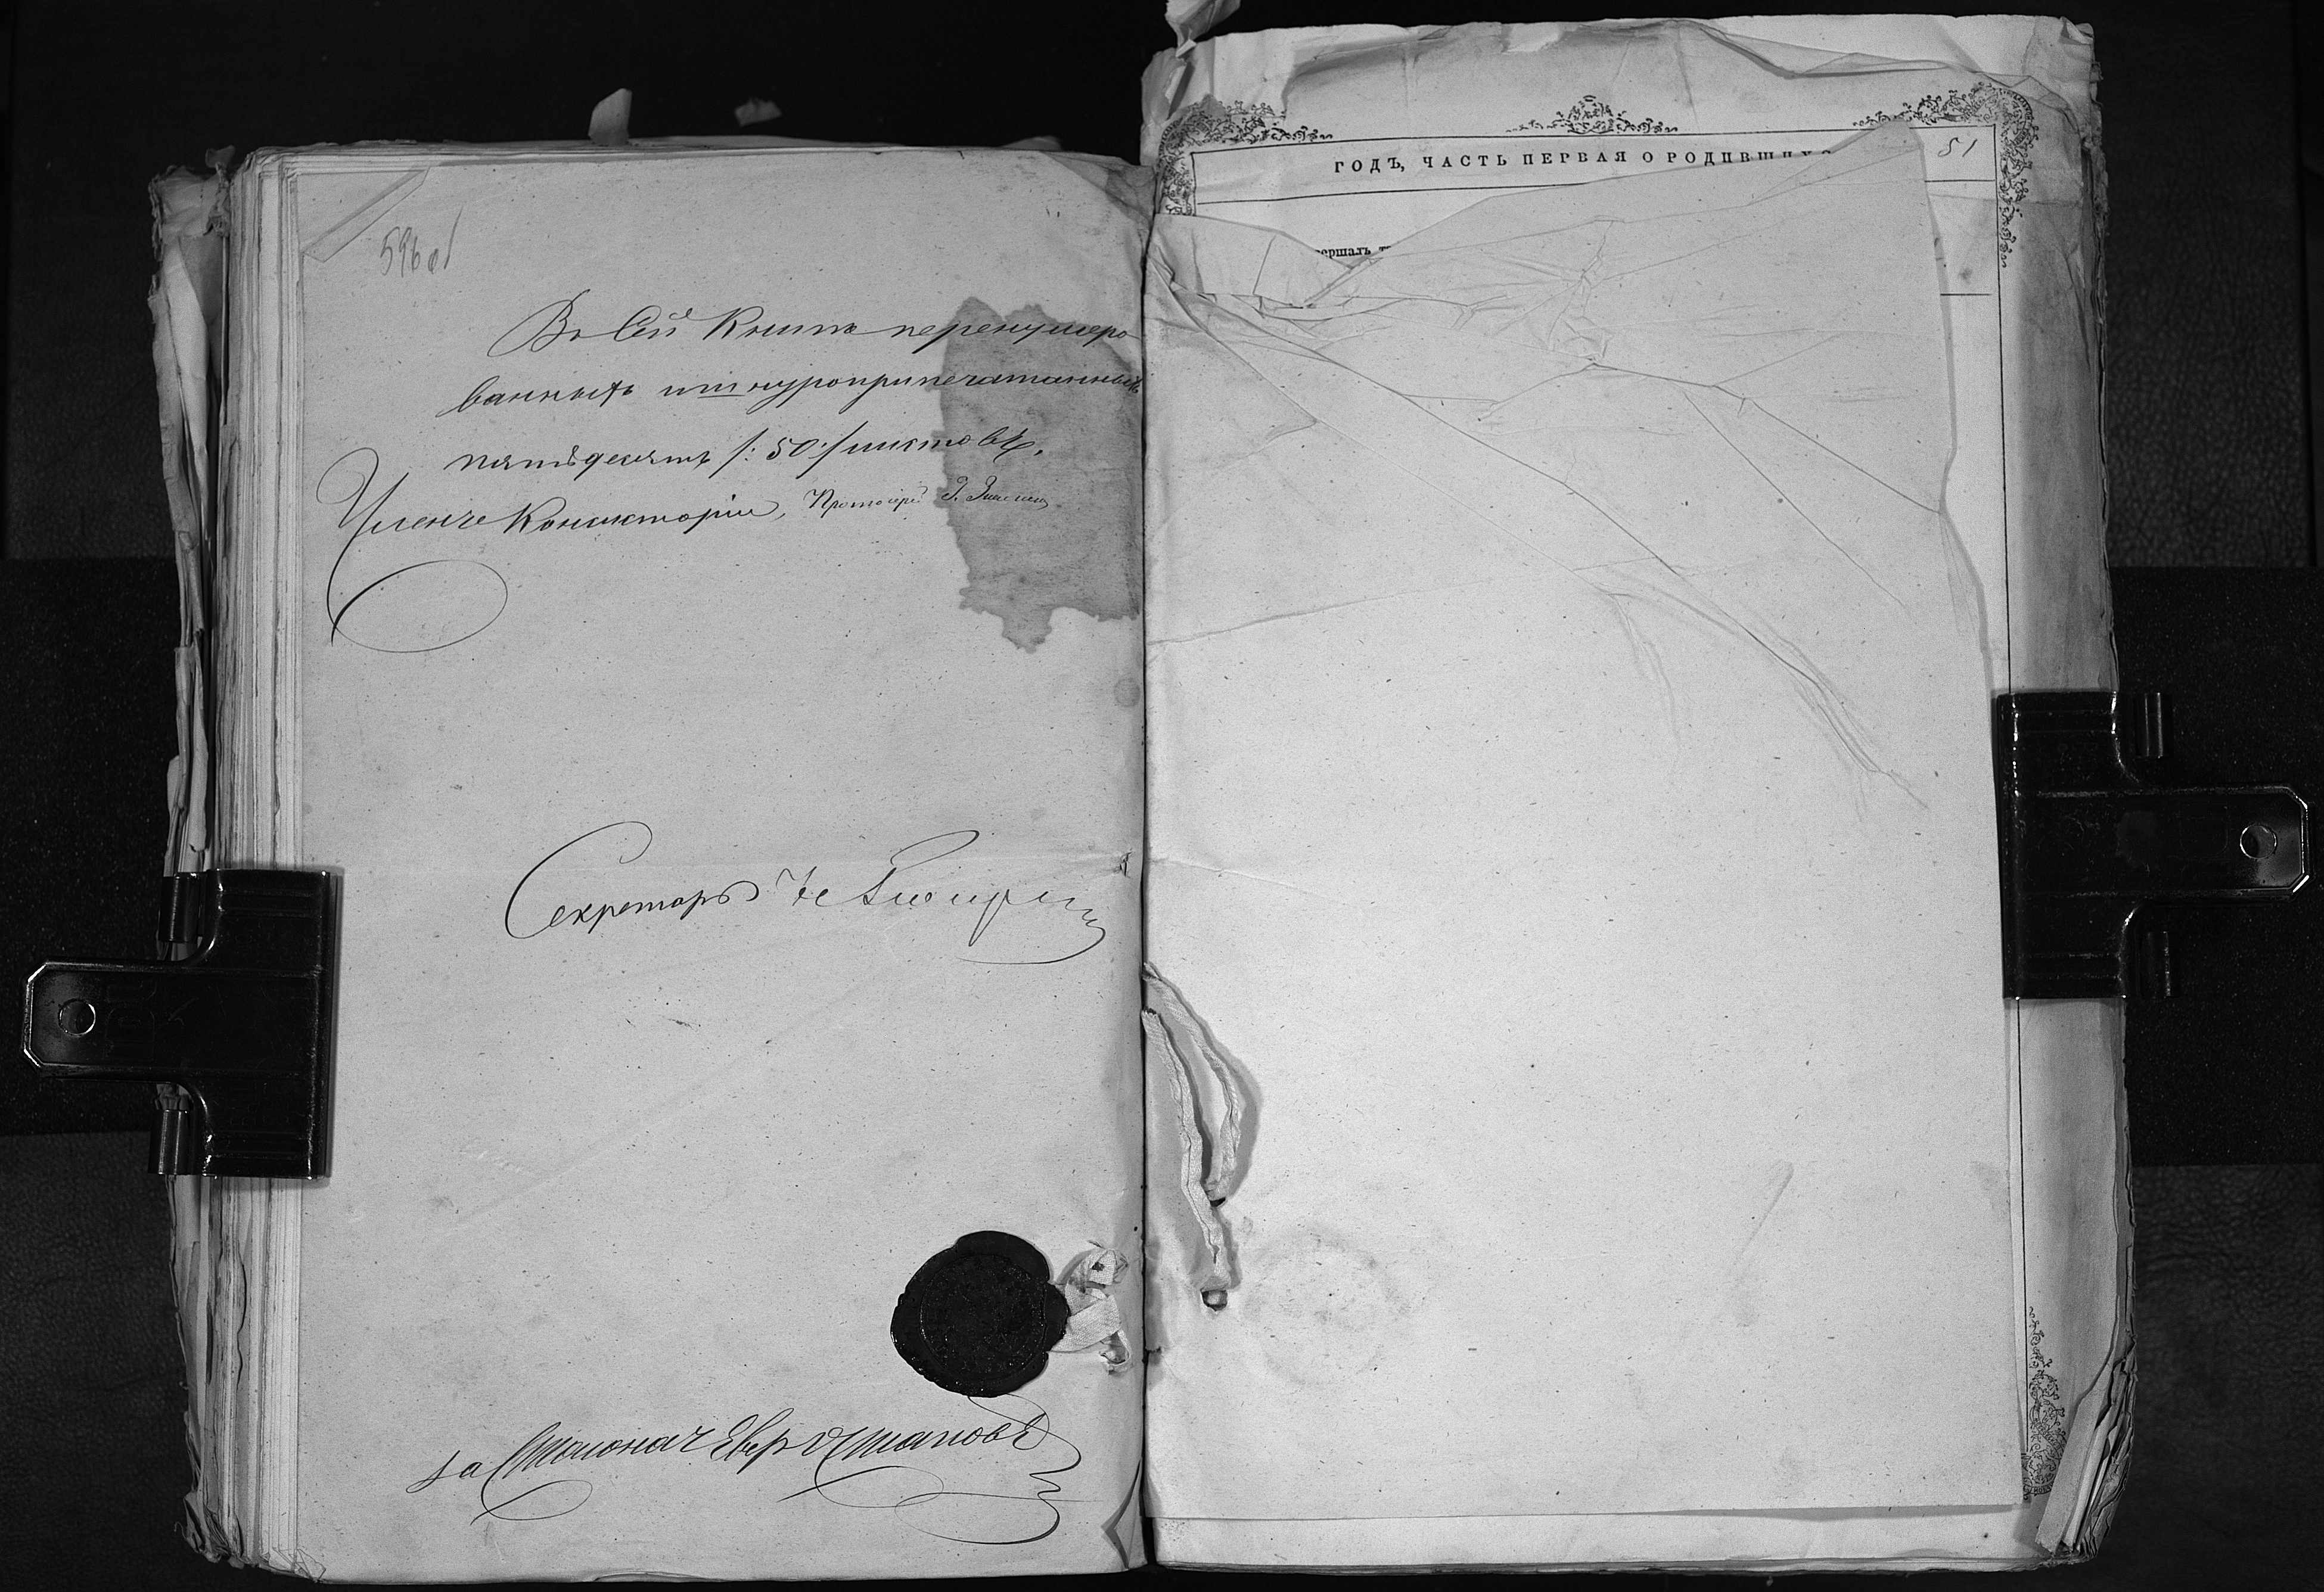 596 об
Въ сей Книгѣ перенумеро
ванныхъ и шнуроприпечатанныхъ
пятьдесятъ /: 50 :/ листовъ.
Членъ Консисторіи, Протоіерей
Секретарь
за Столонач
ГОДЪ, ЧАСТЬ ПЕРВАЯ О РОДИВШИХС
51
ершалъ т